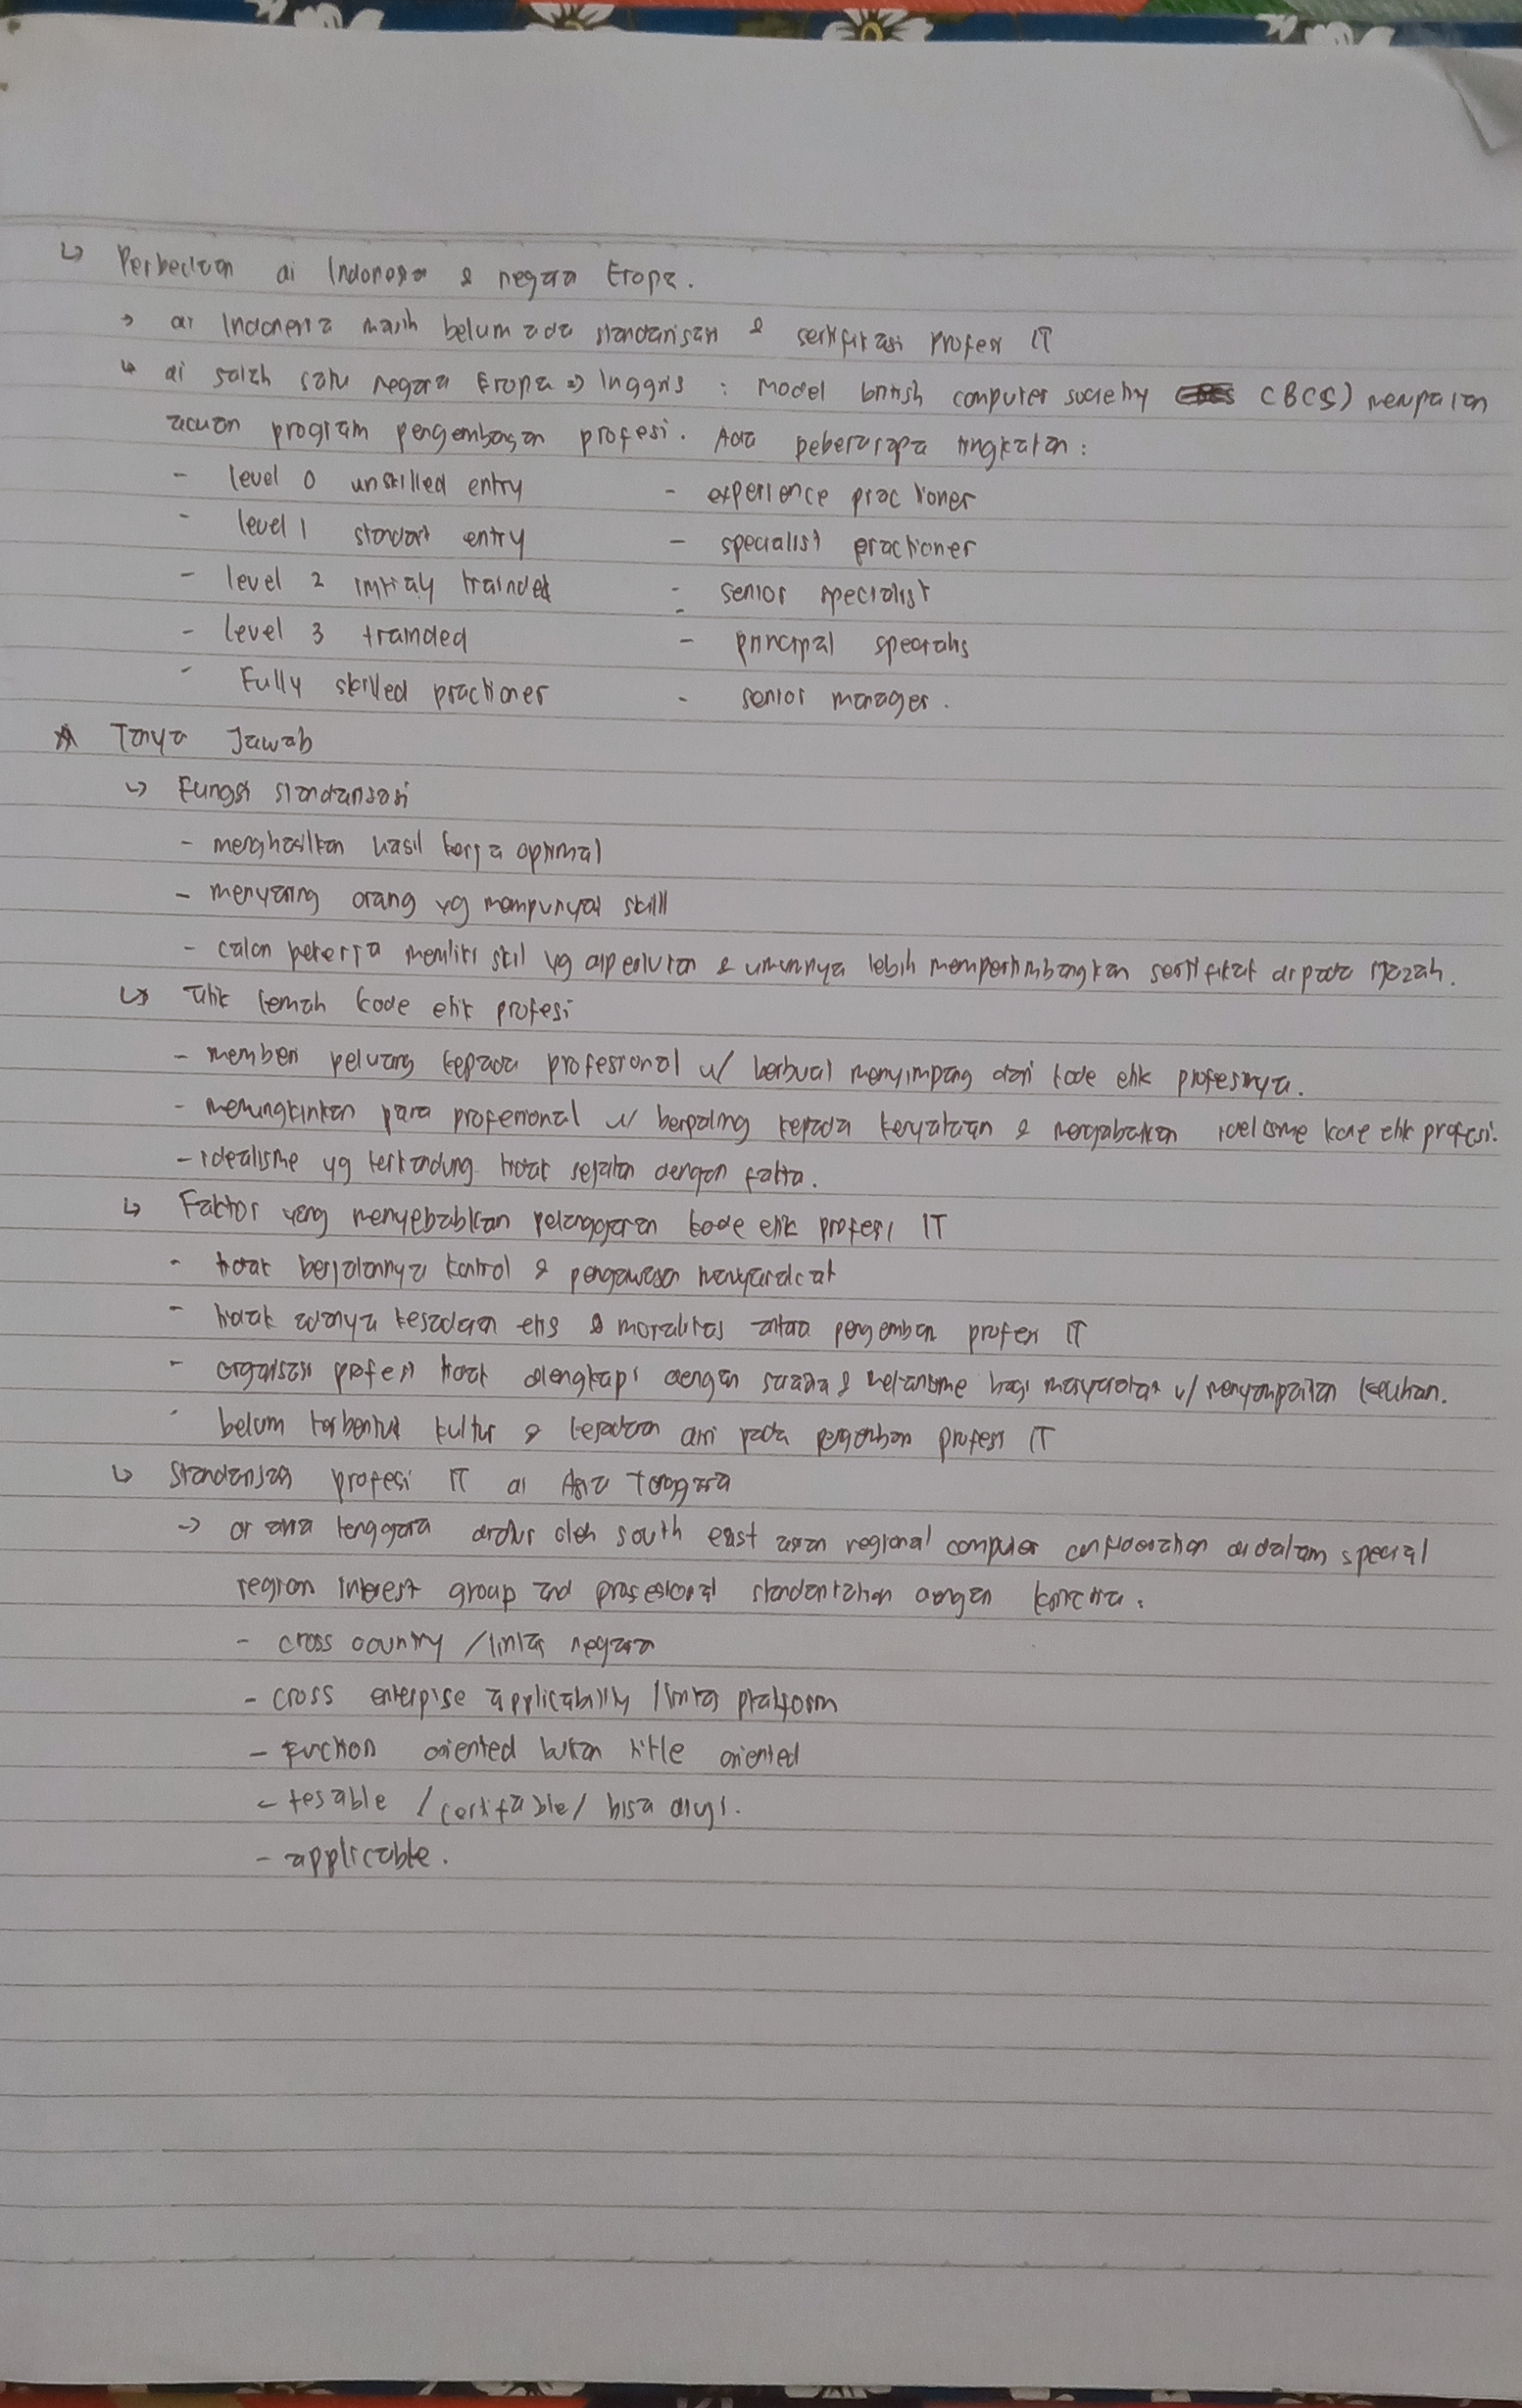 ↳ Perbedaan di Indonesia & negara Eropa.
→ di Indonesia masih belum ada standarisasi & sertifikasi profesi IT
↳ di salah satu negara Eropa => Inggris : Model british computer society (BCS) merupakan
acuan program pengembangan profesi. Ada beberapa tingkatan :
- level 0 unskilled entry - experience practioner
- level 1 standart entry - specialist practioner
- level 2 initialy trainded - senior specialist
- level 3 trainded - principal specialis
- Fully skilled practioner - senior manager.
* Tanya Jawab
↳ Fungsi standarisasi
- menghasilkan hasil kerja optimal
- menyaring orang yg mempunyai skill
- calon pekerja memiliki skil yg diperlukan & umumnya lebih mempertimbangkan sertifikat dripada ijazah.
↳ Titik lemah kode etik profesi
- memberi peluang kepada profesional u/ berbuat menyimpang dari kode etik profesinya.
- memungkinkan para profesional u/ berpaling kepada kenyataan & mengabaikan idelisme kode etik profesi.
- idealisme yg terkandung tidak sejalan dengan fakta.
↳ Faktor yang menyebabkan pelanggaran kode etik profesi IT
- tidak berjalannya kontrol & pengawasan masyarakat
- tidak adanya kesadaran etis & moralitas antara pengemban profesi IT
- organisasi profesi tidak dilengkapi dengan sarana & mekanisme bagi masyarakat u/ menyampaikan keluhan.
- belum terbentuk kultur & kesadaran dari pada pengemban profesi IT
↳ Standarisasi profesi IT di Asia Tenggara
→ di asia tenggara diatur oleh south east asian regional computer confideration didalam special
region interest group and profesional standarization dengan kriteria :
- cross country / lintas negara
- cross enterpise applicability / lintas platform
- Fuction oriented bukan title oriented
- tesable / certifiable / bisa diuji.
- applicable.